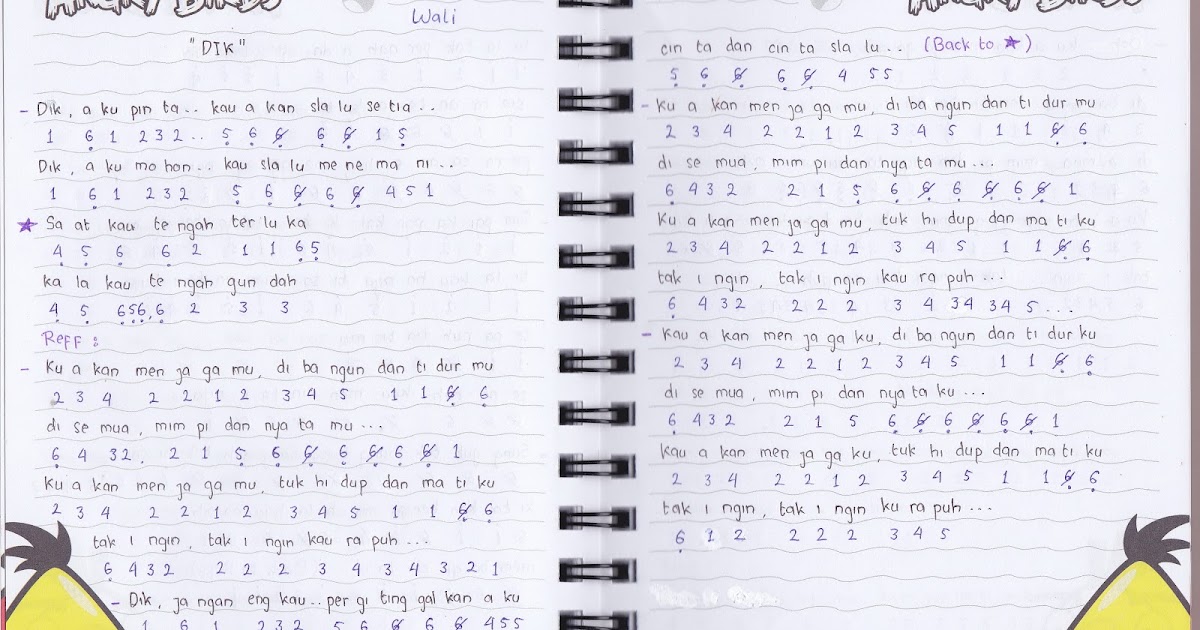 Wali
"DIK"
- Dik, a ku pin ta.. kau a kan sla lu se tia..
1 6 1 232.. 5 6 6̸ 6 6̸ 1 5
Dik, a ku mo hon.. kau sla lu me ne ma ni..
1 6 1 232 5 6 6̸ 6 6̸ 4 5 1
★ Sa at kau te ngah ter lu ka
4 5 6 6 2 1 1 65
ka la kau te ngah gun dah
4 5 656,6 2 3 3
Reff :
- Ku a kan men ja ga mu, di ba ngun dan ti dur mu
2 3 4 2 2 1 2 3 4 5 1 1 6̸ 6
di se mua, mim pi dan nya ta mu...
6 4 32. 2 1 5 6 6̸ 6 6̸ 6 6̸ 1
Ku a kan men ja ga mu, tuk hi dup dan ma ti ku
2 3 4 2 2 1 2 3 4 5 1 1 6̸ 6
tak i ngin, tak i ngin kau ra puh...
6 4 3 2 2 2 2 3 4 3 4 3 2 1
- Dik, ja ngan eng kau.. per gi ting gal kan a ku
1 6 1 232 5 6 6̸ 6 6̸ 455
cin ta dan cin ta sla lu.. (Back to ★)
5 6 6̸ 6 6̸ 4 55
- Ku a kan men ja ga mu, di ba ngun dan ti dur mu
2 3 4 2 2 1 2 3 4 5 1 1 6̸ 6
di se mua, mim pi dan nya ta mu...
6 4 3 2 2 1 5 6 6̸ 6 6̸ 6 6̸ 1
Ku a kan men ja ga mu, tuk hi dup dan ma ti ku
2 3 4 2 2 1 2 3 4 5 1 1 6̸ 6
tak i ngin, tak i ngin kau ra puh...
6 4 3 2 2 2 2 3 4 34 34 5...
- Kau a kan men ja ga ku, di ba ngun dan ti dur ku
2 3 4 2 2 1 2 3 4 5 1 1 6̸ 6
di se mua, mim pi dan nya ta ku...
6 4 3 2 2 1 5 6 6̸ 6 6̸ 6 6̸ 1
Kau a kan men ja ga ku, tuk hi dup dan ma ti ku
2 3 4 2 2 1 2 3 4 5 1 1 6̸ 6
tak i ngin, tak i ngin ku ra puh...
6 1 2 2 2 2 3 4 5